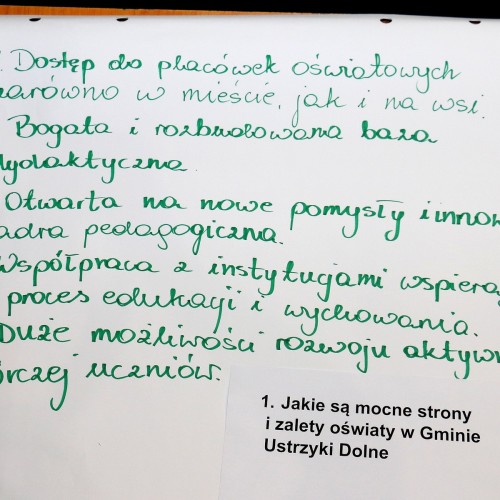 . Dostęp do placówek oświatowych
zarówno w mieście, jak i na wsi.
Bogata i rozbudowana baza
dydaktyczna.
Otwarta na nowe pomysły i innow
kadra pedagogiczna.
Współpraca z instytucjami wspiera
proces edukacji i wychowania.
Duże możliwości rozwoju aktywn
órczej uczniów.
1. Jakie są mocne strony
i zalety oświaty w Gminie
Ustrzyki Dolne